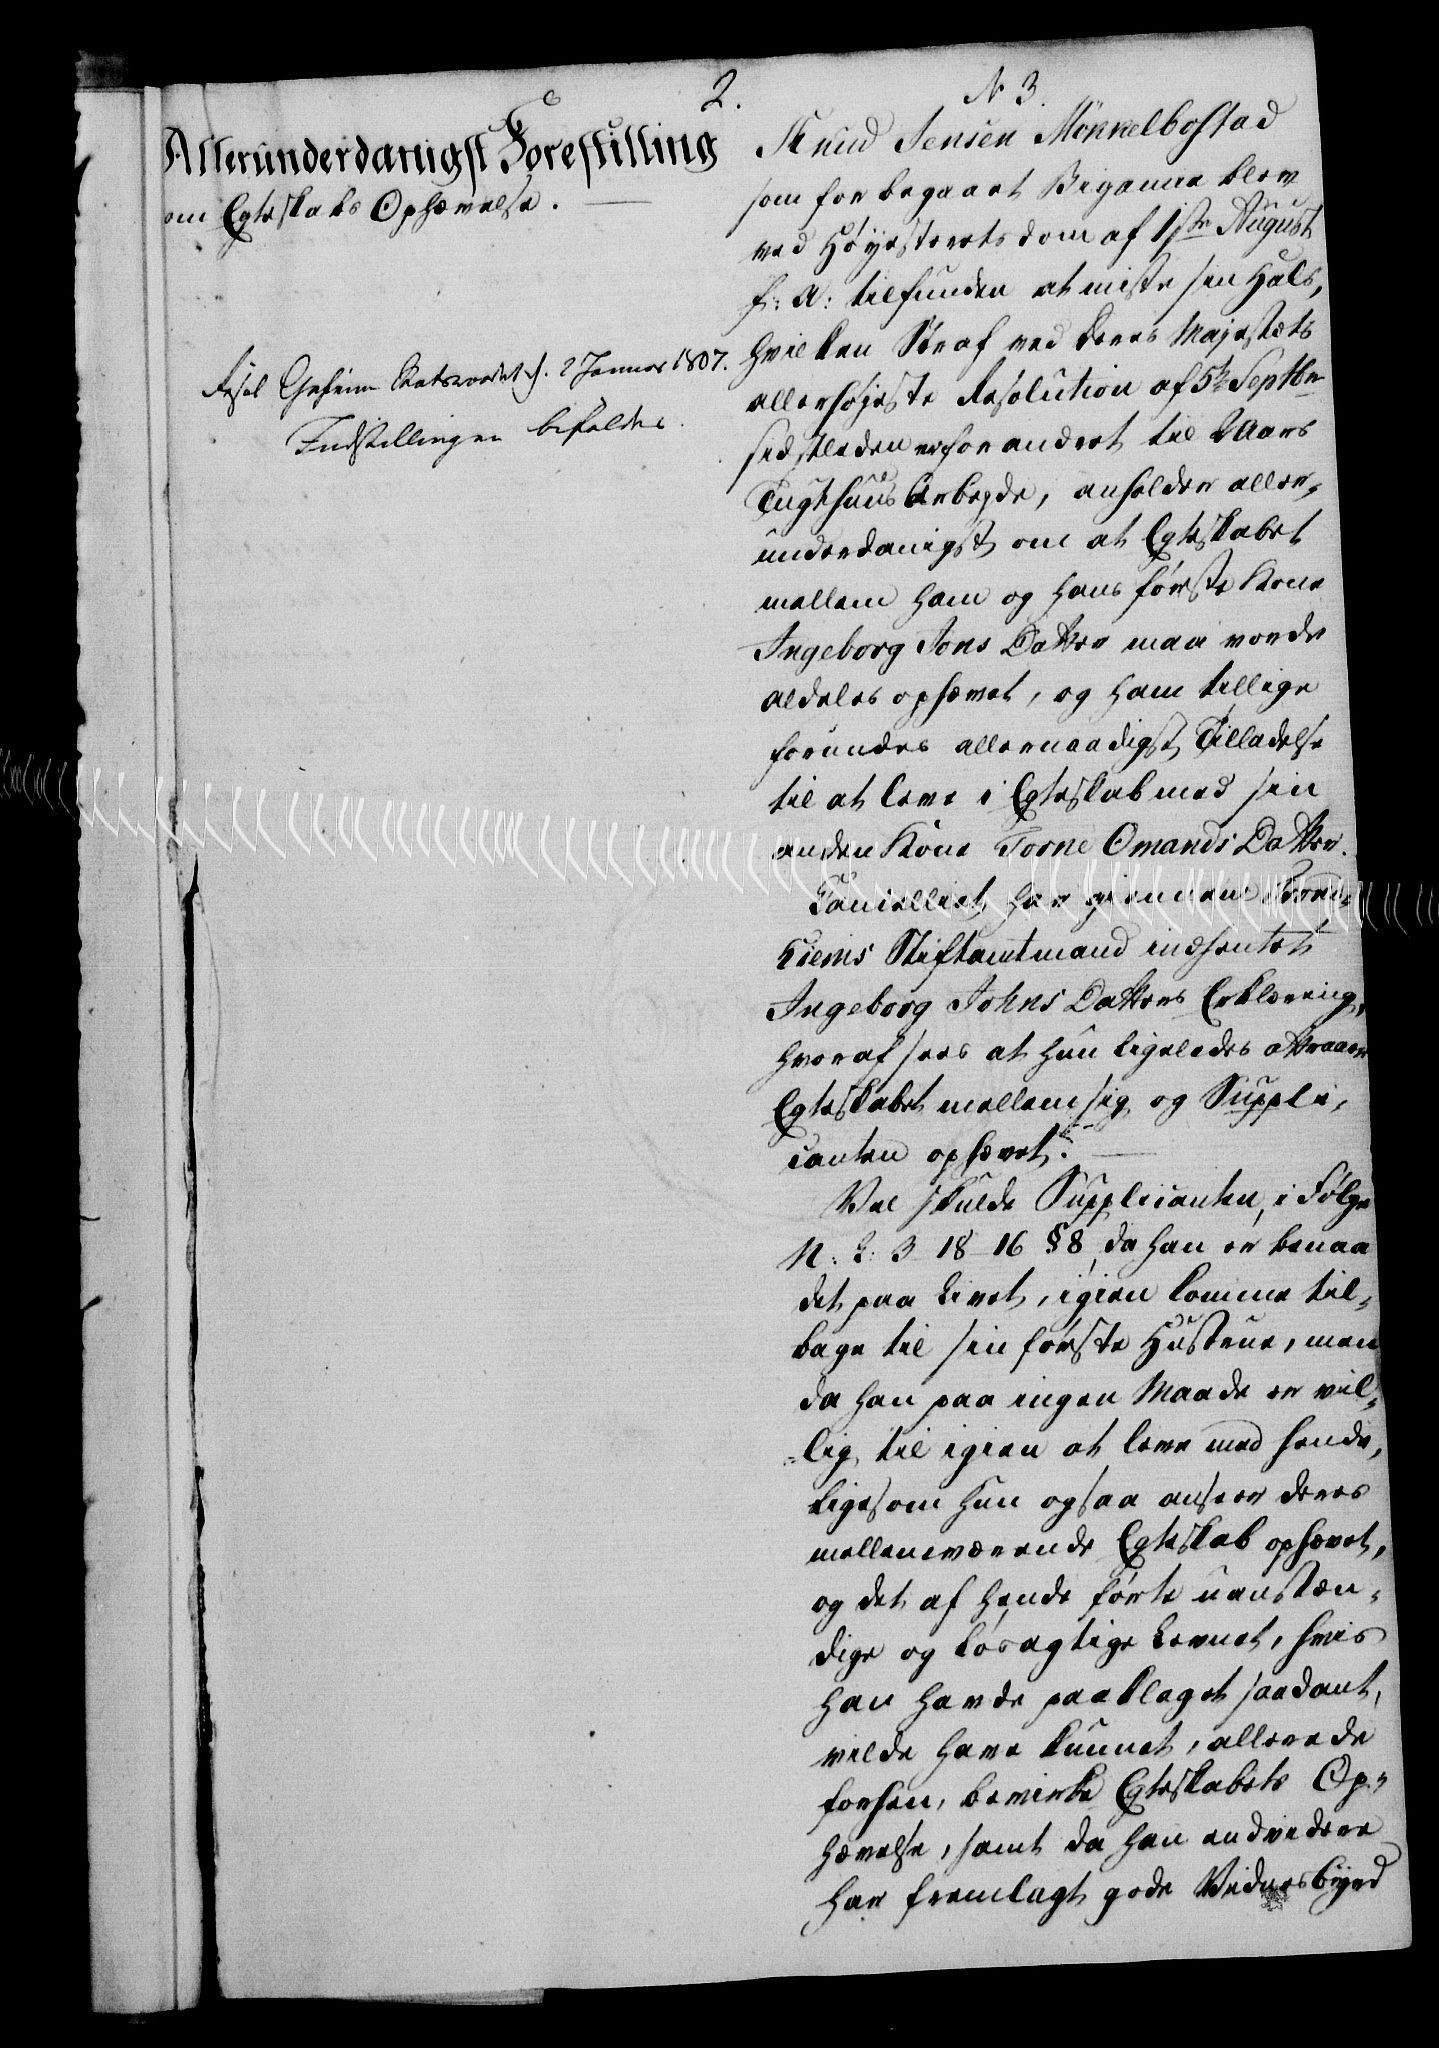 2.
Allerunderdanigst Forestilling
om Egteskabs Ophævelse.
Resol Geheim Raadet d. 2 Januar 1807.
Indstillingen bifaldes.
N 3.
Knud Jensen Mønnelbostad
som for begaaet Bigamie blev
ved Høyesteretsdom af 1ste August
f: A: tilfunden at miste sin Hals,
hvilken Straf ved Deres Majestæts
allerhøjeste Resolution af 5te Septbr
sidstleden er forandret til 2 Aars
Tugthuus Arbeyde, anholder aller-
underdanigst om at Egteskabet
mellem ham og hans første Kone
Ingeborg Jons Datter maa vorde
aldeles ophævet, og ham tillige
forundes allernaadigst Tilladelse
til at leve i Egteskab med sin
anden Kone Torne Omands Datter.
Cancelliet har giennem Trond-
hiems Stiftamtmand indhentet
Ingeborg Johns Datters Erklæring,
hvoraf sees at hun ligeledes attraaer
Egteskabet mellem sig og Suppli-
canten ophævet.
Vel skulde Supplicanten, i Følge
N: L: 3-18-16 § 8, da han er benaa
det paa Livet, igien komme til-
bage til sin første Hustrue, men
da han paa ingen Maade er vil-
lig til igien at leve med hende,
ligesom hun ogsaa anseer deres
mellemværende Egteskab ophævet,
og det af hende førte uanstæn-
dige og løsagtige Levnet, hvis
han havde paaklaget saadant,
vilde have kunnet, allerede
forhen, bevirke Egteskabets Op-
hævelse, samt da han endvidere
har fremlagt gode Vidnesbyrd